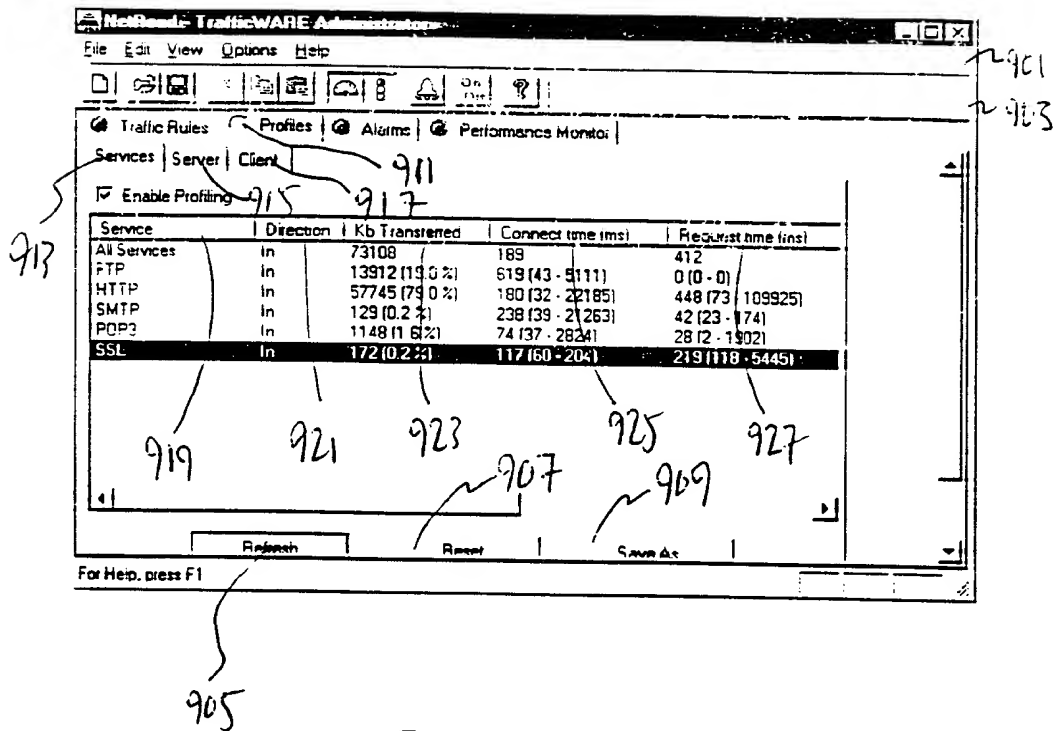 TrafficWARE Administrator
File Edit View Options Help
901
903
Traffic Rules Profiles Alarms Performance Monitor
Services Server Client
911
Enable Profiling
915 917
913
Service Direction Kb Transferred Connect time (ms) Request time (ms)
All Services In 73108 189 412
FTP In 13912 (19.0 %) 619 (43 - 5111) 0 (0 - 0)
HTTP In 57745 (79.0 %) 180 (32 - 22185) 448 (73 - 109925)
SMTP In 129 (0.2 %) 238 (39 - 21263) 42 (23 - 174)
POP3 In 1148 (1.6 %) 74 (37 - 2824) 28 (2 - 1902)
SSL In 172 (0.2 %) 117 (60 - 204) 219 (118 - 5445)
919 921 923 925 927
907 909
Refresh Reset Save As
For Help, press F1
905